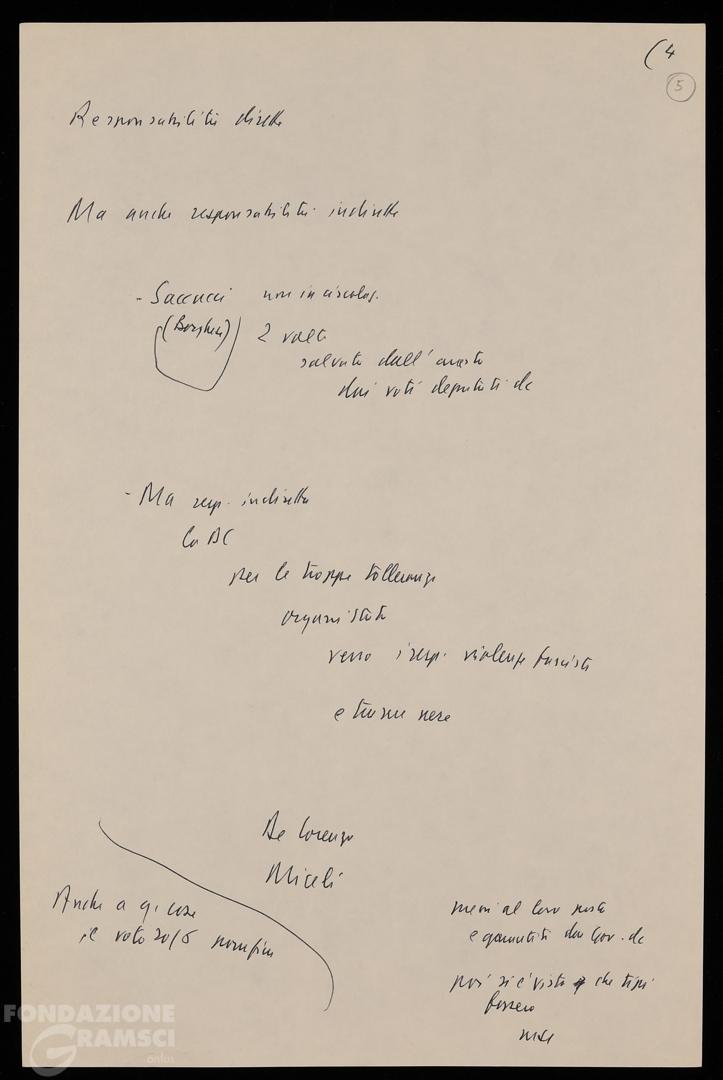 (4
5
Responsabilità dirette
Ma anche responsabilità indirette
- Saccucci non in circolaz.
(Borghese) 2 volte
salvato dall'arresto
dai voti deputati dc
- Ma resp. indirette
la DC
per le troppe tolleranze
organizzate
verso i resp. violenze fasciste
e trame nere
De Lorenzo
Miceli
Anche a q. cose
il voto 20/6
messi al loro posto
e garantiti dai Gov. dc
poi si è visto che tipi
fossero
FONDAZIONE
GRAMSCI
onlus